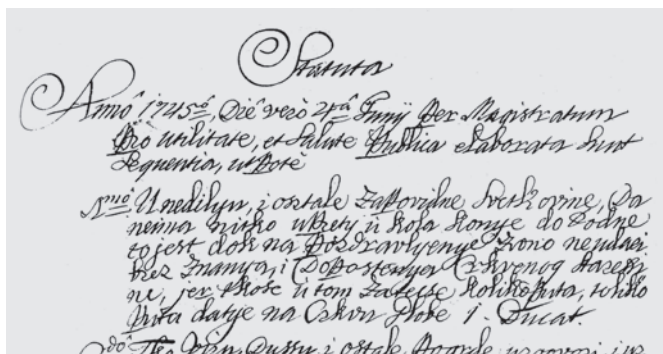 Statuta
Anno 1745to, Die vero 21ma Junÿ Per Magistratum
Pro utilitate, et Salute Publica elaborata sunt
Sequentia, utPote
1mo Unedilyu, i ostale zaPovidne Svetkovine, Da
neima nitko uPrety u kola konye do Podne
to jest dok na Pozdravlyenye zvono neudari
brez znanya, i DoPostenya Crkvenog Staressi
ne, jer tkose u tom zatecse koliko Puta, toliko
Puta datye na Crkvu Globe 1. Ducat.
ostale